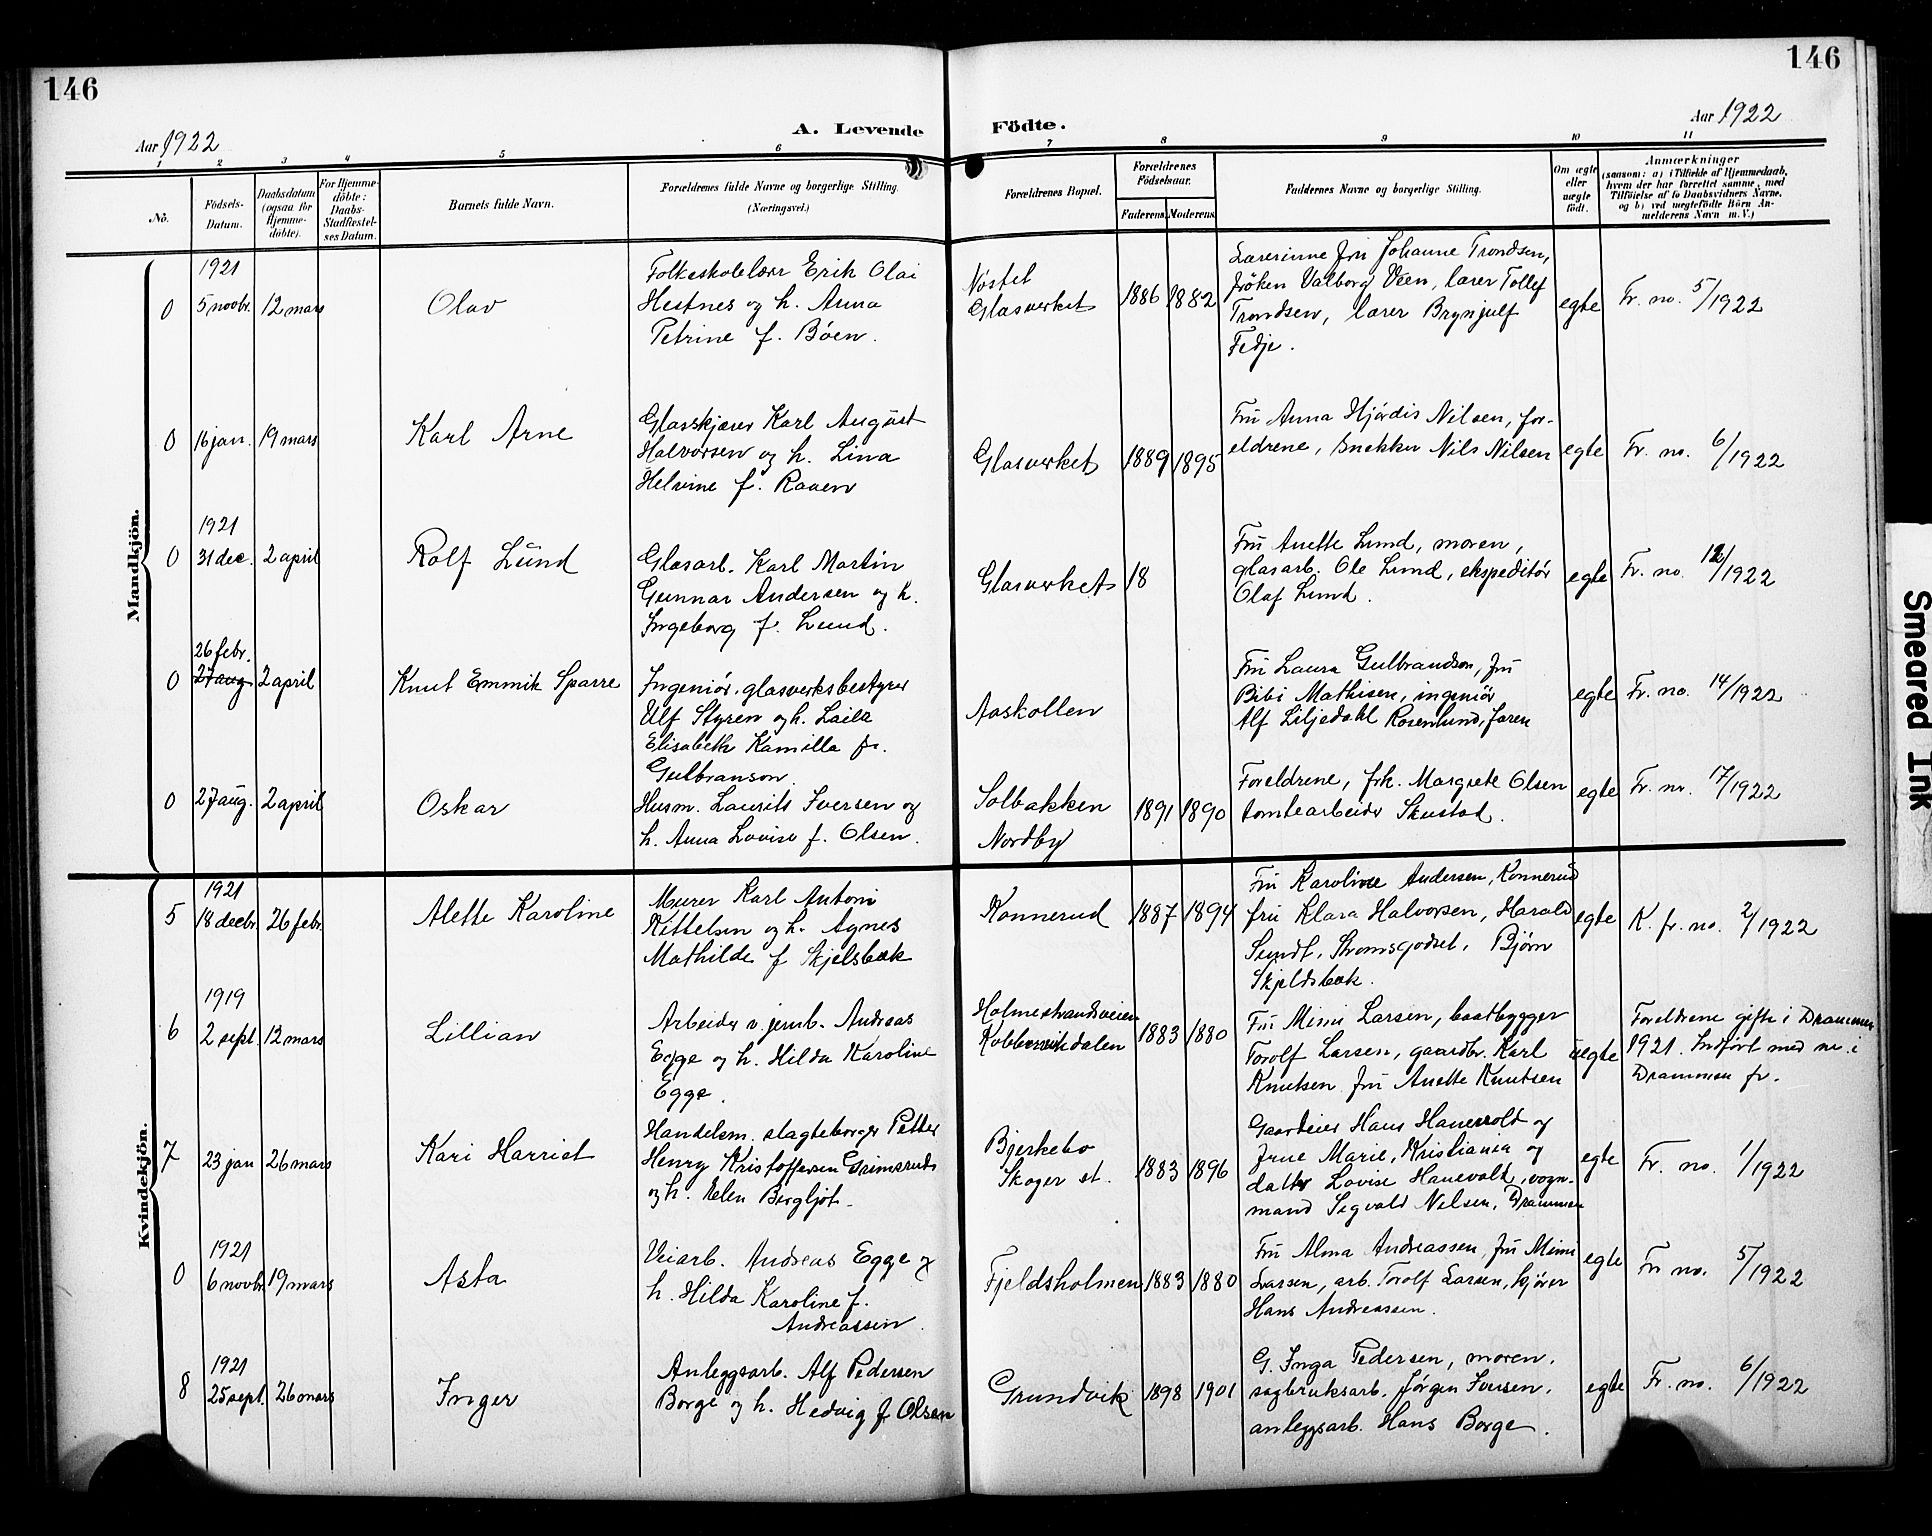 146
146
Aar 1922
A. Levende
Födte.
Aar 1922
1 2 3 4 5 6 7 8 9 10 11
No.
Födsels-
Datum.
Daabsdatum
(ogsaa for
Hjemme-
döbte).
For Hjemme-
döbte:
Daabs-
Stadfæstel-
ses Datum.
Barnets fulde Navn.
Forældrenes fulde Navne og borgerlige Stilling.
(Næringsvei.)
Forældrenes Bopæl.
Forældrenes
Födselsaar.
Faderens.
Moderens.
Faddernes Navne og borgerlige Stilling.
Om ægte
eller
uægte
födt.
Anmærkninger
(saasom: a) i Tilfælde af Hjemmedaab,
hvem der har forrettet samme, med
Tilföielse af to Daabsvidners Navne,
og b) ved uegtefödte Börn An-
melderens Navn m. V.)
Mandkjön.
0
1921
5 novbr.
12 mars
Olav
Folkeskolelærer Erik Olai
Hestnes og h. Anna
Petrine f. Böen.
Nöstet
Glasverket
1886
1882
Lærerinne fru Johanne Trondsen,
fröken Valborg Veen, lærer Tollef
Trondsen, lærer Brynjulf
Fedje.
egte
Fr. no. 5/1922
0
16 jan.
19 mars
Karl Arne
Glasskjærer Karl August
Halvorsen og h. Lina
Helvine f. Raaen
Glasverket
1889
1895
Fru Anna Hjördis Nilsen, for-
eldrene, snekker Nils Nilsen
egte
Fr. no. 6/1922
0
1921
31 dec.
2 april
Rolf Lund
Glasarb. Karl Martin
Gunnar Andersen og h.
Ingeborg f. Lund.
Glasverket
18
Fru Anette Lund, moren,
glasarb. Ole Lund, ekspeditör
Olaf Lund.
egte
Fr. no. 12/1922
0
26 febr.
27 aug
2 april
Knut Emmik Sparre
Ingeniör, glasverksbestyrer
Ulf Styren og h. Laila
Elisabeth Kamilla f.
Gulbranson.
Aaskollen
Fru Laura Gulbrandson, fru
Bibi Mathisen, ingeniör
Alf Liljedahl Rosenlund, faren
egte
Fr. no. 14/1922
0
27 aug.
2 april
Oskar
Husm. Laurits Iversen og
h. Anna Lovise f. Olsen.
Solbakken
Nordby
1891
1890
Foreldrene, frk. Margrete Olsen
tomtearbeider Skustad.
egte
Fr. nr. 17/1922
Kvindekjön.
5
1921
18 decbr.
26 febr.
Alette Karoline
Murer Karl Anton
Kittelsen og h. Agnes
Mathilde f Skjelsbæk
Konnerud
1887
1894
Fru Karoline Andersen, Konnerud
fru Klara Halvorsen, Harald
Sundt, Strömsgodset, Björn
Skjeldsbæk.
egte
K. fr. no. 2/1922
6
1919
2 sept.
12 mars
Lillian
Arbeider v. jernb. Andreas
Egge og h. Hilda Karoline
Egge.
Holmestrandsveien
Kobbervikdalen
1883
1880
Fru Mimi Larsen, baatbygger
Torolf Larsen, gaardbr. Karl
Knutsen fru Anette Knutsen
uegte
Foreldrene gifte i Drammen
1921. Indfört med nr. i
Drammen fr.
7
23 jan
26 mars
Kari Harriet
Handelsm. slagteborger Petter
Henry Kristoffersen Grimsrud
og h. Elen Bergljot.
Bjerkebo
Skoger st.
1883
1896
Gaardeier Hans Hanevold og
frue Marie, Kristiania og
datter Lovise Hanevold, vogn-
mand Sigvald Nilsen, Drammen
egte
Fr. no. 1/1922
0
1921
6 novbr.
19 mars
Asta
Veiarb. Andreas Egge og
h. Hilda Karoline f.
Andreassen.
Fjeldsholmen
1883
1880
Fru Alma Andreassen, fru Mimi
Larsen, arb. Torolf Larsen, kjörer
Hans Andreassen.
egte
Fr no. 5/1922
8
1921
25 sept.
26 mars
Inger
Anleggsarb. Alf Pedersen
Borge og h. Hedvig f Olsen
Grundvik
1898
1901
G. Inga Pedersen, moren,
sagbruksarb. Jörgen Iversen,
anleggsarb. Hans Borge.
egte
Fr. no. 6/1922
Smeared Ink